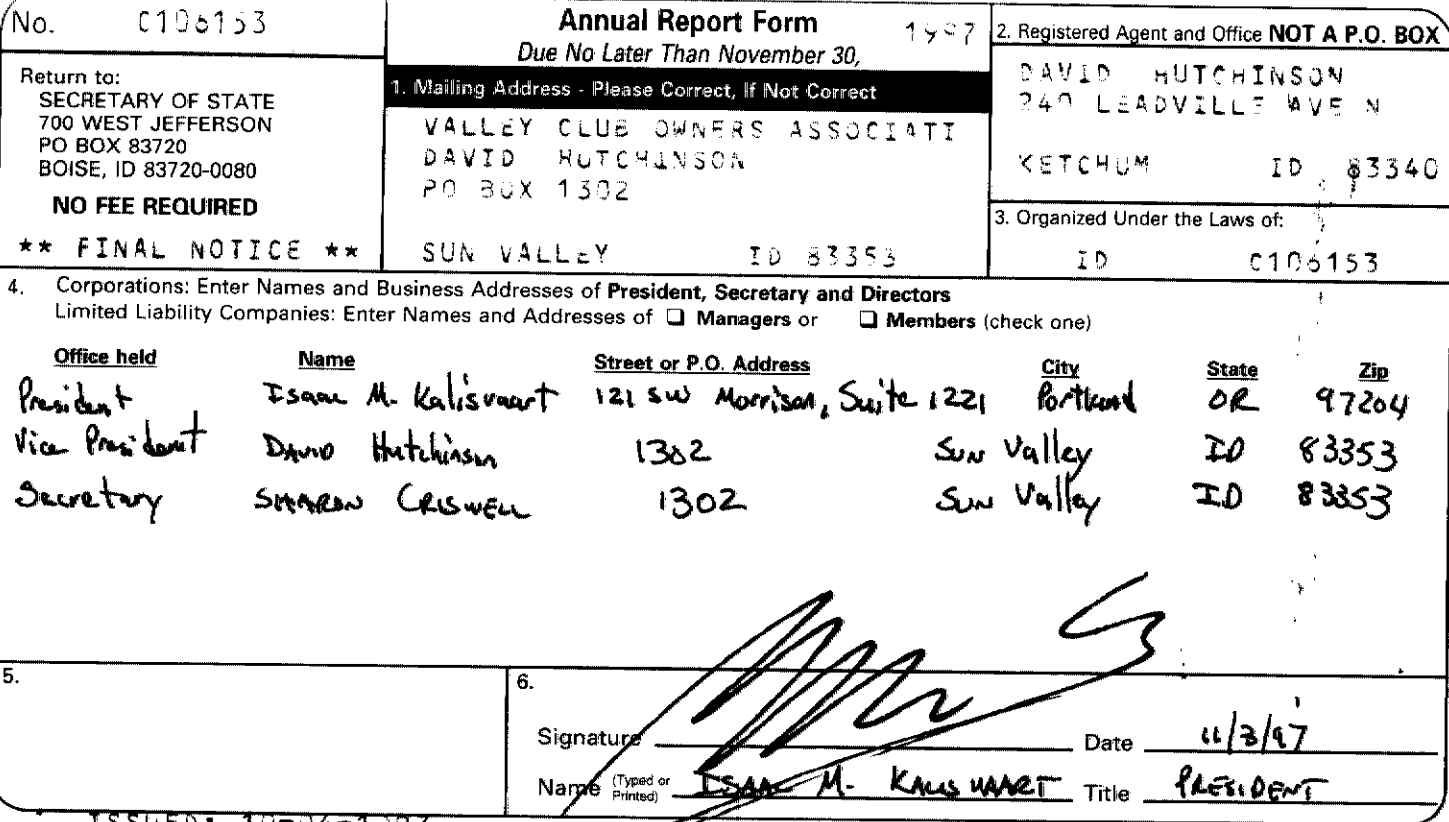 No. C106153
Annual Report Form 1997
Due No Later Than November 30,
Return to:
SECRETARY OF STATE
700 WEST JEFFERSON
PO BOX 83720
BOISE, ID 83720-0080
NO FEE REQUIRED
** FINAL NOTICE **
1. Mailing Address - Please Correct, If Not Correct
VALLEY CLUB OWNERS ASSOCIATI
DAVID HUTCHINSON
PO BOX 1302
SUN VALLEY ID 83353
2. Registered Agent and Office NOT A P.O. BOX
DAVID HUTCHINSON
240 LEADVILLE AVE N
KETCHUM ID 83340
3. Organized Under the Laws of:
ID C106153
4. Corporations: Enter Names and Business Addresses of President, Secretary and Directors
Limited Liability Companies: Enter Names and Addresses of ❑ Managers or ❑ Members (check one)
Office held Name Street or P.O. Address City State Zip
President Isaac M. Kalisvaart 121 SW Morrison, Suite 1221 Portland OR 97204
Vice President DAVID Hutchinson 1302 Sun Valley ID 83353
Secretary SHARON CRISWELL 1302 Sun Valley ID 83353
5.
6.
Signature Date 11/3/97
Name (Typed or Printed) ISAAC M. KALISVAART Title PRESIDENT
ISSUED: